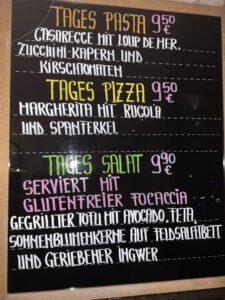 TAGES PASTA 9,50 €
CASARECCE MIT LOUP DE MER,
ZUCCHINI-KAPERN UND
KIRSCHTOMATEN
TAGES PIZZA 9,50 €
MARGHERITA MIT RUCOLA
UND SPANFERKEL
TAGES SALAT 9,90 €
SERVIERT MIT
GLUTENFREIER FOCACCIA
GEGRILLTER TOFU MIT AVOCADO, FETA,
SONNENBLUMENKERNE AUF FELDSALATBETT
UND GERIEBENER INGWER